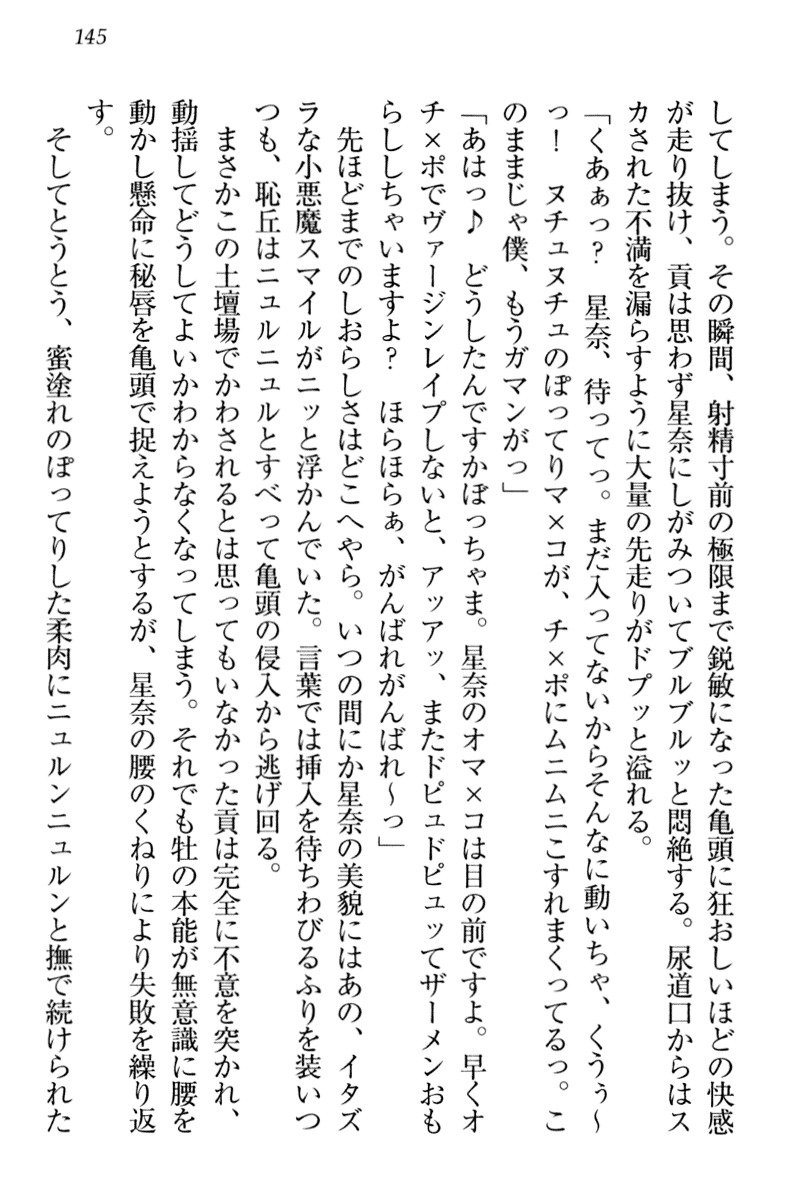 145
してしまう。その瞬間、射精寸前の極限まで鋭敏になった亀頭に狂おしいほどの快感
が走り抜け、貢は思わず星奈にしがみついてブルブルッと悶絶する。尿道口からはス
カされた不満を漏らすように大量の先走りがドプッと溢れる。
「くあぁっ?　星奈、待ってっ。まだ入ってないからそんなに動いちゃ、くうぅ～
っ!　ヌチュヌチュのぽってりマ×コが、チ×ポにムニムニこすれまくってるっ。こ
のままじゃ僕、もうガマンがっ」
「あはっ♪　どうしたんですかぼっちゃま。星奈のオマ×コは目の前ですよ。早くオ
チ×ポでヴァージンレイプしないと、アッアッ、またドピュドピュッてザーメンおも
らししちゃいますよ?　ほらほらぁ、がんばれがんばれ～っ」
先ほどまでのしおらしさはどこへやら。いつの間にか星奈の美貌にはあの、イタズ
ラな小悪魔スマイルがニッと浮かんでいた。言葉では挿入を待ちわびるふりを装いつ
つも、恥丘はニュルニュルとすべって亀頭の侵入から逃げ回る。
まさかこの土壇場でかわされるとは思ってもいなかった貢は完全に不意を突かれ、
動揺してどうしてよいかわからなくなってしまう。それでも牡の本能が無意識に腰を
動かし懸命に秘唇を亀頭で捉えようとするが、星奈の腰のくねりにより失敗を繰り返
す。
そしてとうとう、蜜塗れのぽってりした柔肉にニュルンニュルンと撫で続けられた